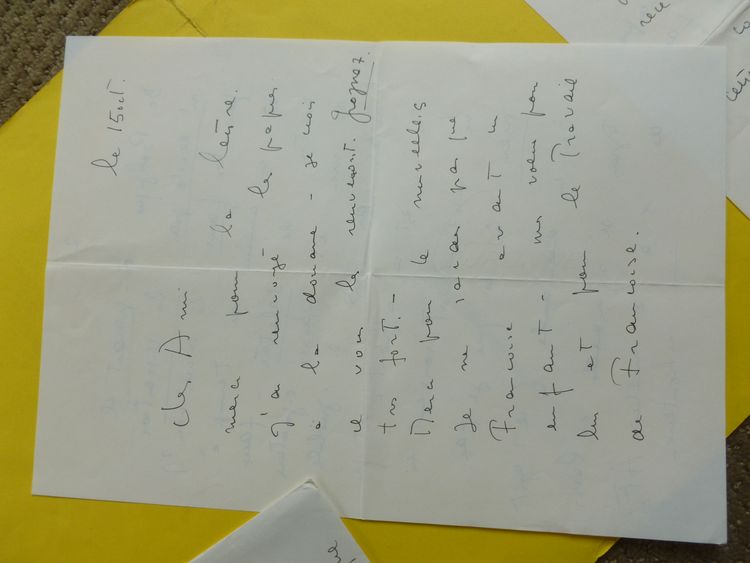 le 15 oct.
cher Ami
merci pour la lettre.
J'ai renvoyé les papiers
à la douane - je crois
et vous les renverront. Gagnez
très fort. -
Merci pour le nouvelles
Je ne savais pas que
Francoise avait un
enfant - mes voeux pour
lui et pour le Travail
de Francoise.